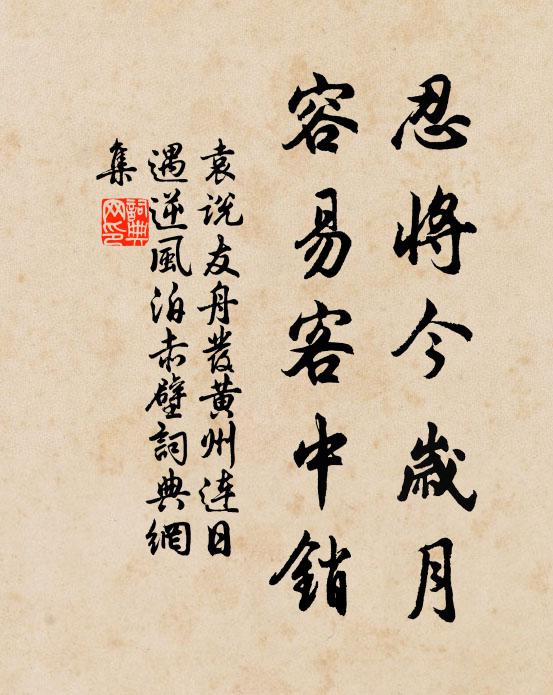 忍將今歲月
容易客中銷
袁説友舟發黃州連日
遇逆風泊赤壁詞典網
集
詞典
网印